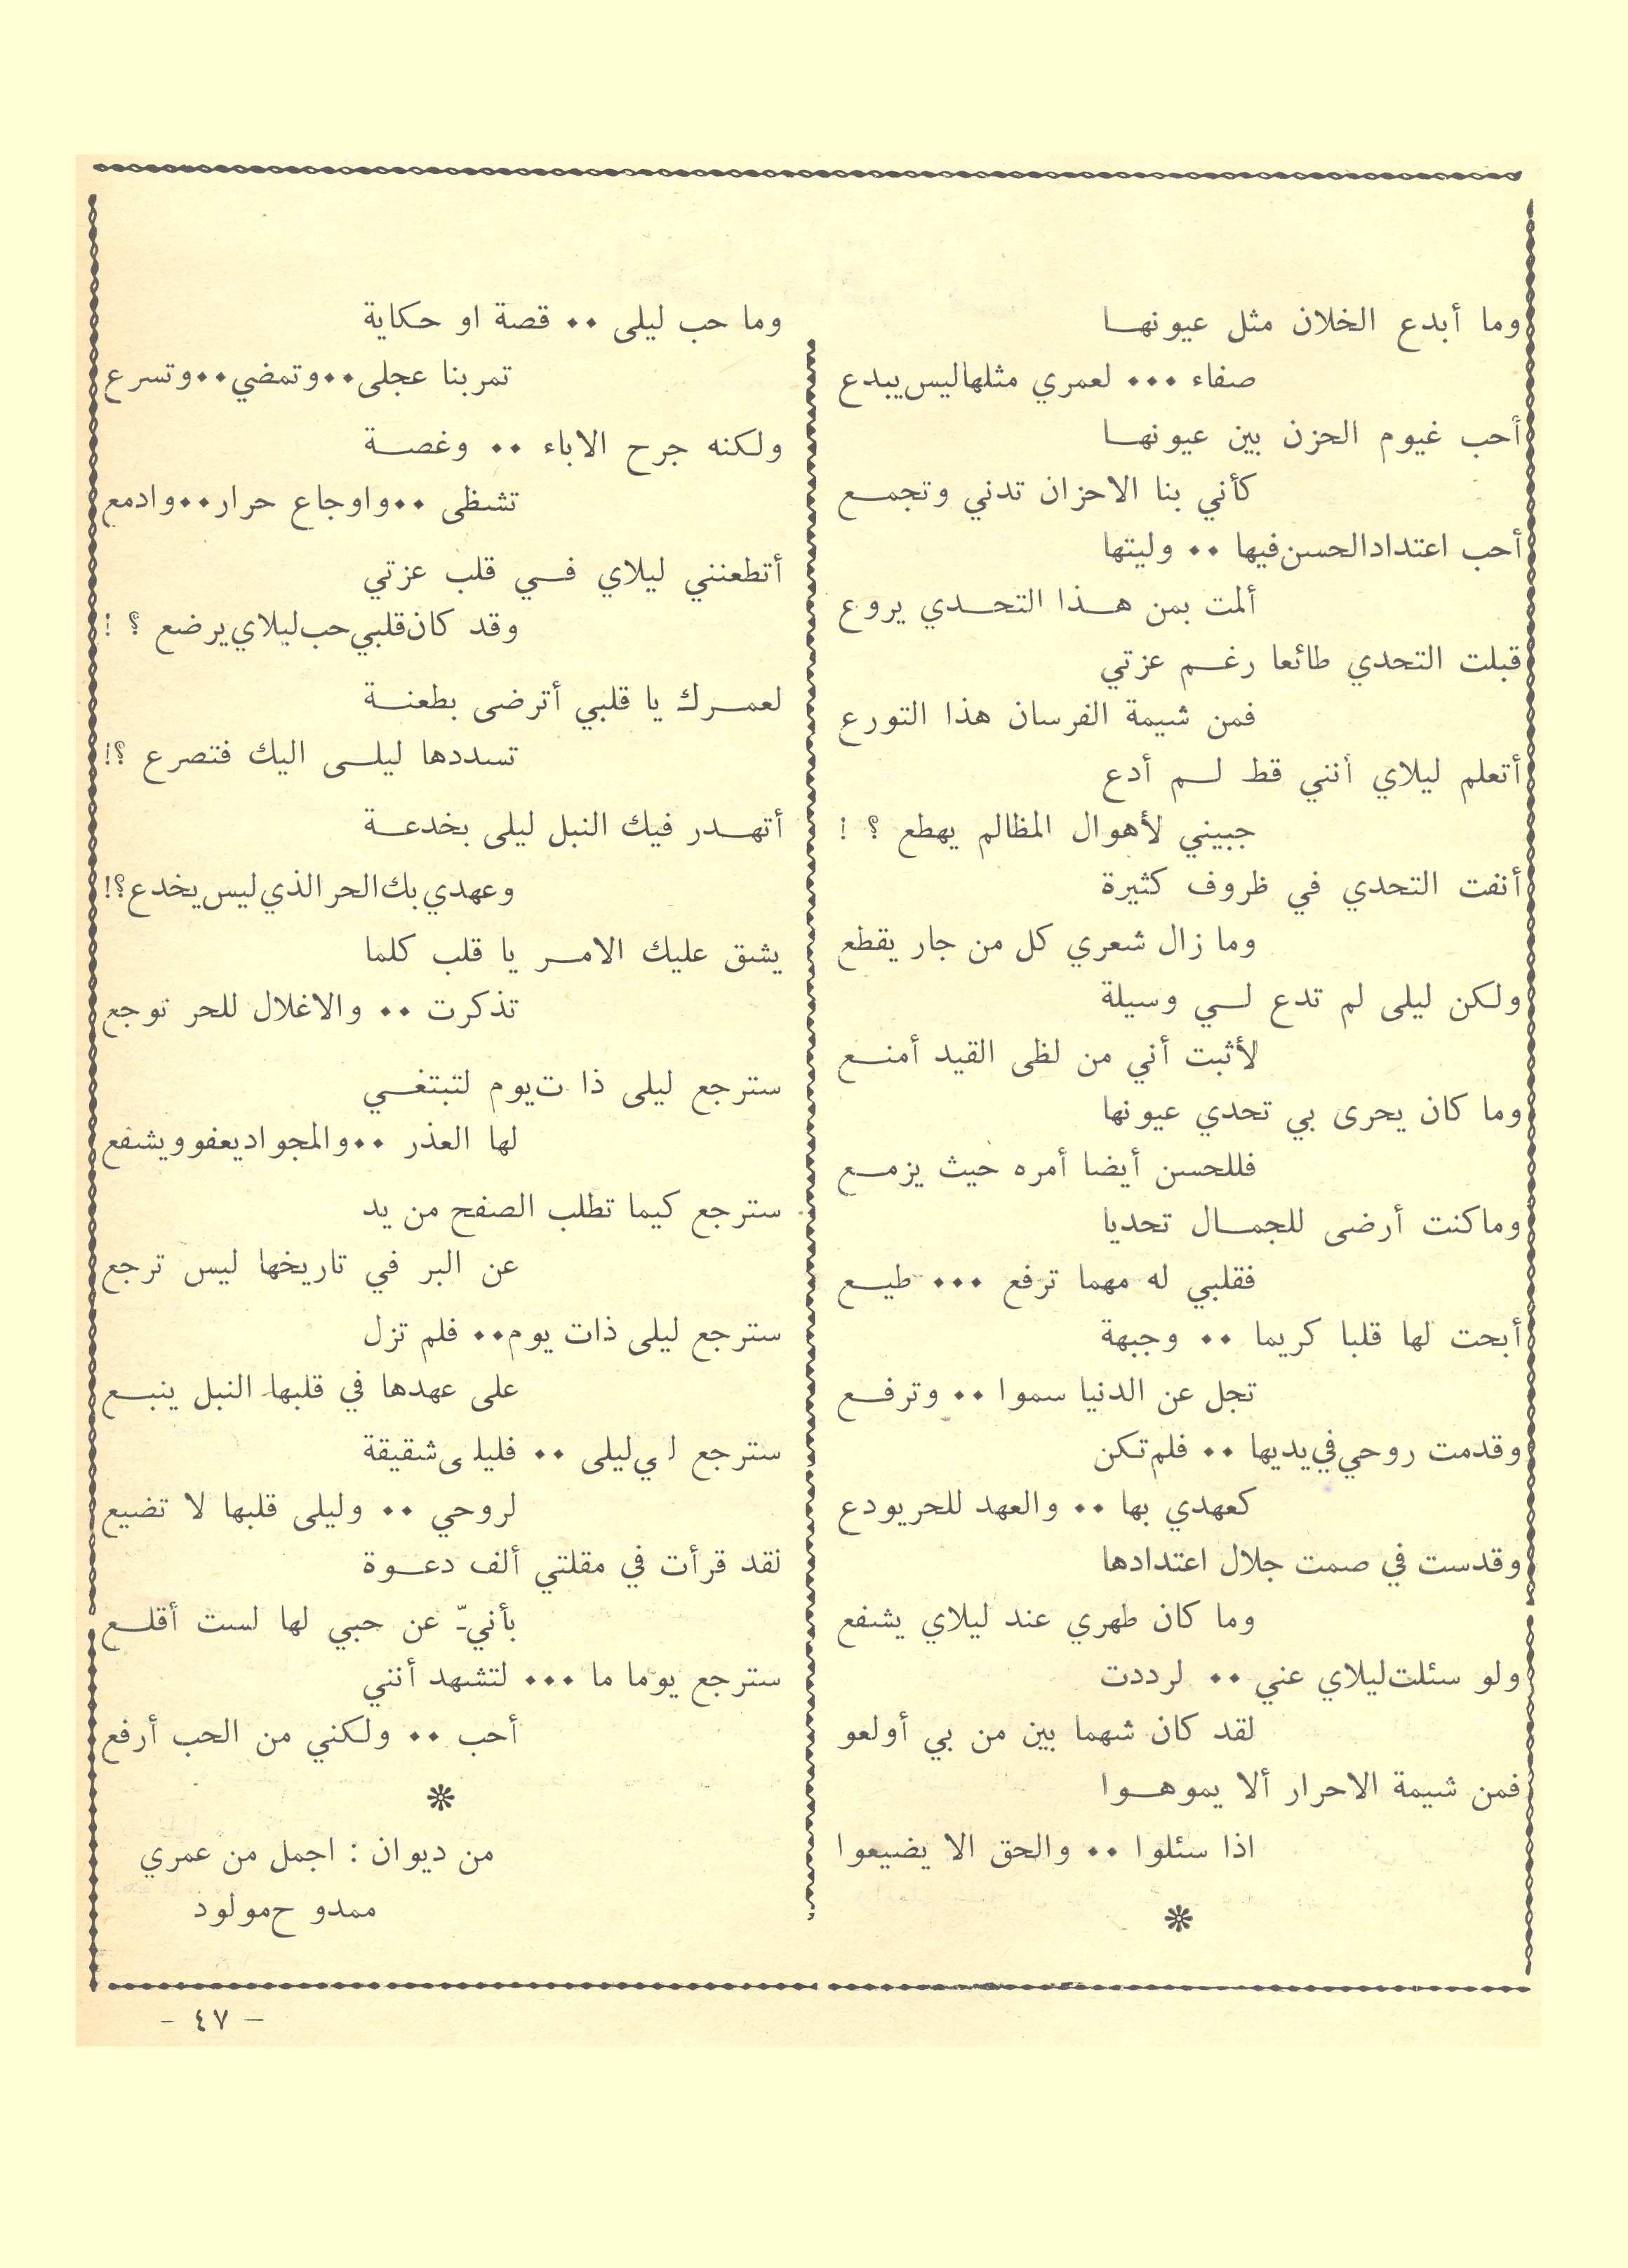 وما أبدع الخلان مثل عيونها
صفاء ... لعمري مثلها ليس يبدع
أحب غيوم الحزن بين عيونها
كأني بنا الاحزان تدني وتجمع
أحب اعتداد الحسن فيها .. وليتها
ألمت بمن هذا التحدي يروع
قبلت التحدي طائعا رغم عزتي
فمن شيمة الفرسان هذا التورع
أتعلم ليلاي أنني قط لم أدع
جبيني لأهوال المظالم يهطع ؟ !
أنفت التحدي في ظروف كثيرة
وما زال شعري كل من جار يقطع
ولكن ليلى لم تدع لي وسيلة
لأثبت أني من لظى القيد أمنع
وما كان يحرى بي تحدي عيونها
فللحسن أيضا أمره حيث يزمع
وما كنت أرضى للجمال تحديا
فقلبي له مهما ترفع ... طيع
أبحت لها قلبا كريما .. وجبهة
تجل عن الدنيا سموا .. وترفع
وقدمت روحي في يديها .. فلم تكن
كعهدي بها .. والعهد للحر يودع
وقدست في صمت جلال اعتدادها
وما كان طهري عند ليلاي يشفع
ولو سئلت ليلاي عني .. لرددت
لقد كان شهما بين من بي أولعو
فمن شيمة الاحرار ألا يموهوا
اذا سئلوا .. والحق الا يضيعوا
وما حب ليلى .. قصة او حكاية
تمر بنا عجلى .. وتمضي .. وتسرع
ولكنه جرح الاباء .. وغصة
تشظى .. واوجاع حرار .. وادمع
أتطعنني ليلاي في قلب عزتي
وقد كان قلبي حب ليلاي يرضع ؟ !
لعمرك يا قلبي أترضى بطعنة
تسددها ليلى اليك فتصرع ؟!
أتهدر فيك النبل ليلى بخدعة
وعهدي بك الحر الذي ليس يخدع ؟!
يشق عليك الامر يا قلب كلما
تذكرت .. والاغلال للحر توجع
سترجع ليلى ذا ت يوم لتبتغي
لها العذر .. والمجواد يعفو ويشفع
سترجع كيما تطلب الصفح من يد
عن البر في تاريخها ليس ترجع
سترجع ليلى ذات يوم .. فلم تزل
على عهدها في قلبها النبل ينبع
سترجع لي ليلى .. فليلى شقيقة
لروحي .. وليلى قلبها لا تضيع
نقد قرأت في مقلتي ألف دعوة
بأنيّ عن حبي لها لست أقلع
سترجع يوما ما ... لتشهد أنني
أحب .. ولكني من الحب أرفع
من ديوان : اجمل من عمري
ممدو ح مولود
- ٤٧ -